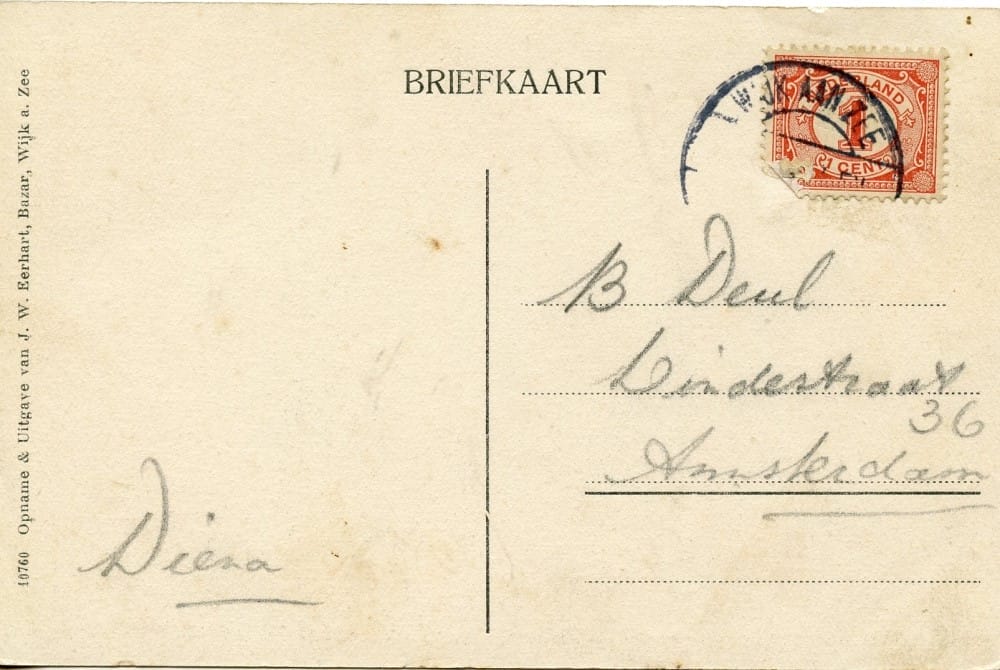 BRIEFKAART
NEDERLAND
1
1 CENT
WIJK AAN ZEE
B Deul
Lindestraat
36
Amsterdam
Diena
10760 Opname & Uitgave van J. W. Eerhart, Bazar, Wijk a. Zee